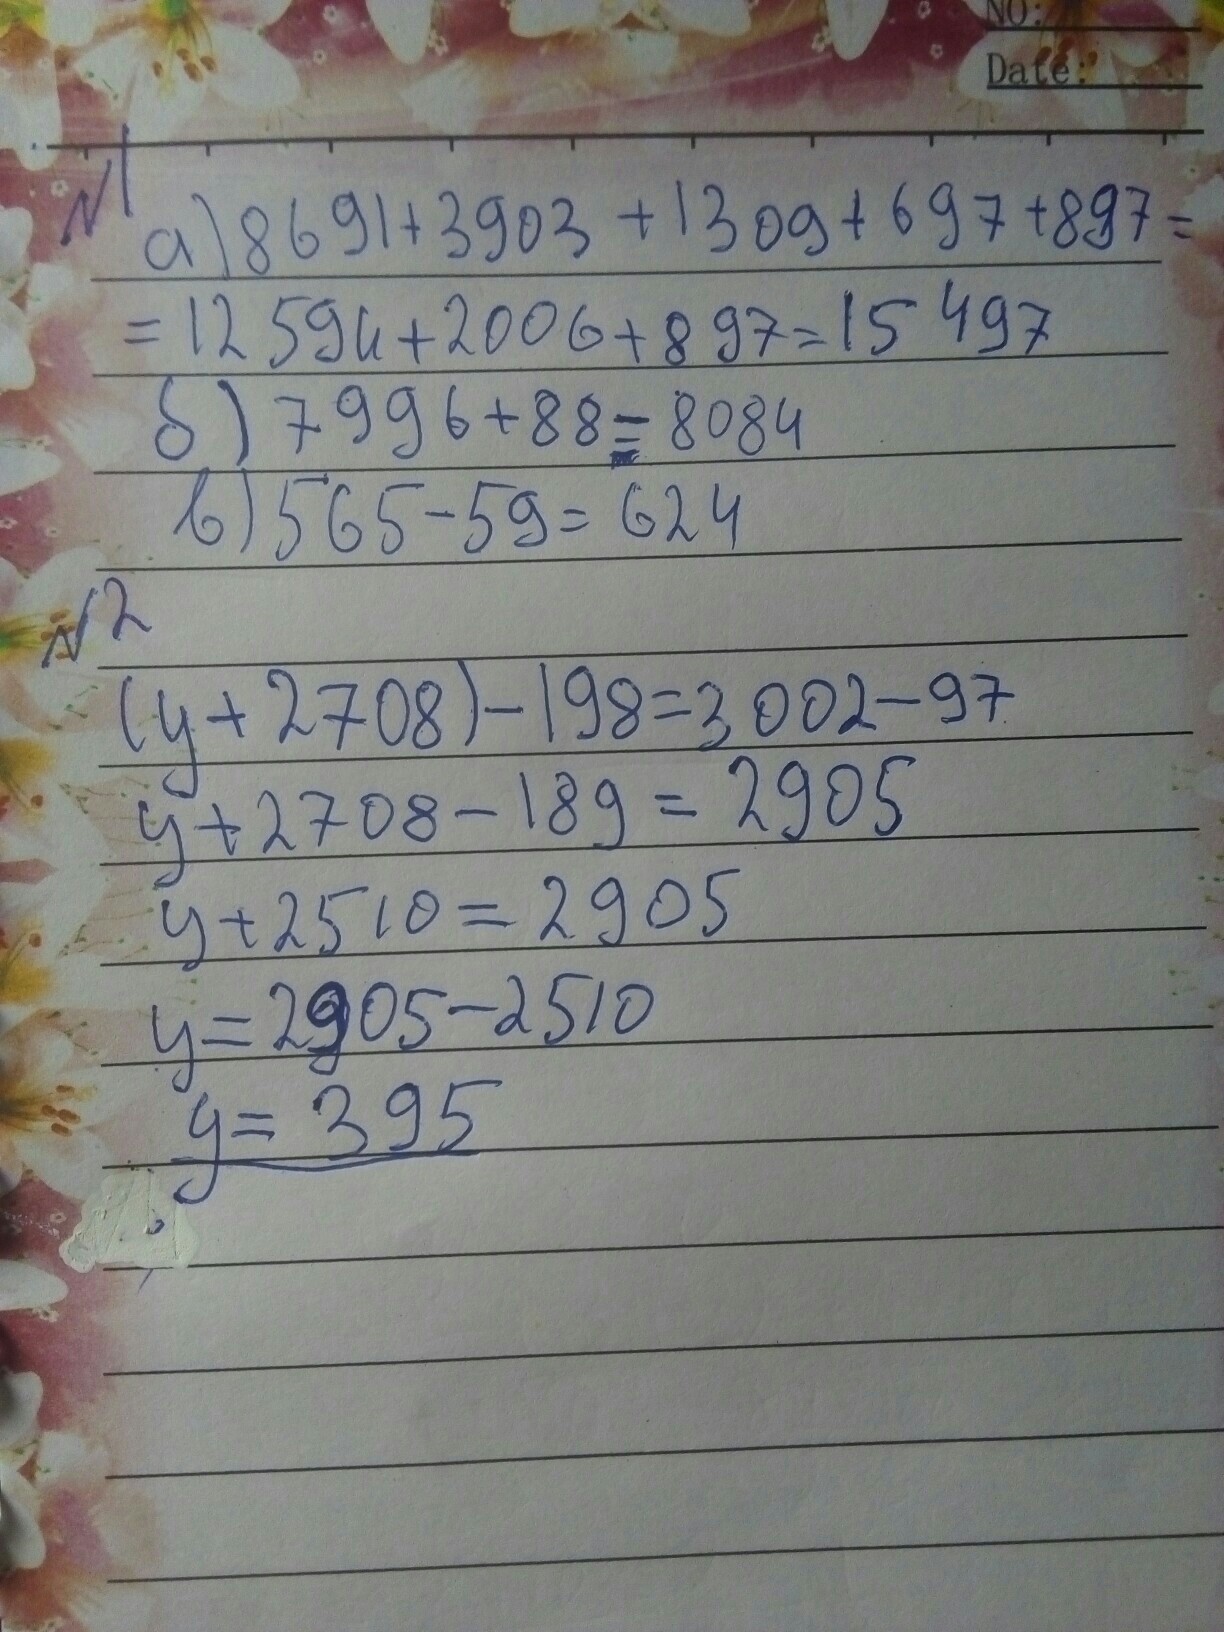 NO:
Date:
№1
а) 8691+3903+1309+697+897=
=12594+2006+897=15497
б) 7996+88=8084
в) 565-59=624
№2
(y+2708)-198=3002-97
y+2708-189=2905
y+2510=2905
y=2905-2510
y=395